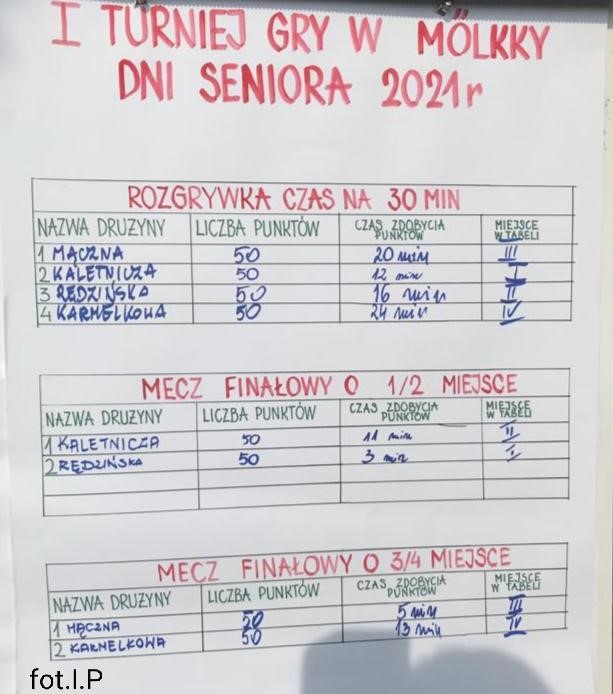 I TURNIEJ GRY W MÖLKKY
DNI SENIORA 2021r
ROZGRYWKA CZAS NA 30 MIN
NAZWA DRUŻYNY LICZBA PUNKTÓW CZAS ZDOBYCIA PUNKTÓW MIEJSCE W TABELI
1 MĄCZNA 50 20 min III
2 KALETNICZA 50 12 min I
3 RĘDZIŃSKA 50 16 min II
4 KARMELKOWA 50 24 min IV
MECZ FINAŁOWY O 1/2 MIEJSCE
NAZWA DRUŻYNY LICZBA PUNKTÓW CZAS ZDOBYCIA PUNKTÓW MIEJSCE W TABELI
1 KALETNICZA 50 11 min II
2 RĘDZIŃSKA 50 3 min I
MECZ FINAŁOWY O 3/4 MIEJSCE
NAZWA DRUŻYNY LICZBA PUNKTÓW CZAS ZDOBYCIA PUNKTÓW MIEJSCE W TABELI
1 MĄCZNA 50 5 min III
2 KARMELKOWA 50 13 min IV
fot.I.P